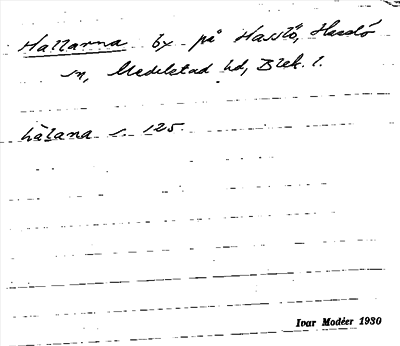 Hallarna by på Hasslö, Hasslö
sn, Medelstad hd, Blek. l.
hàlana s. 125.
Ivar Modéer 1930